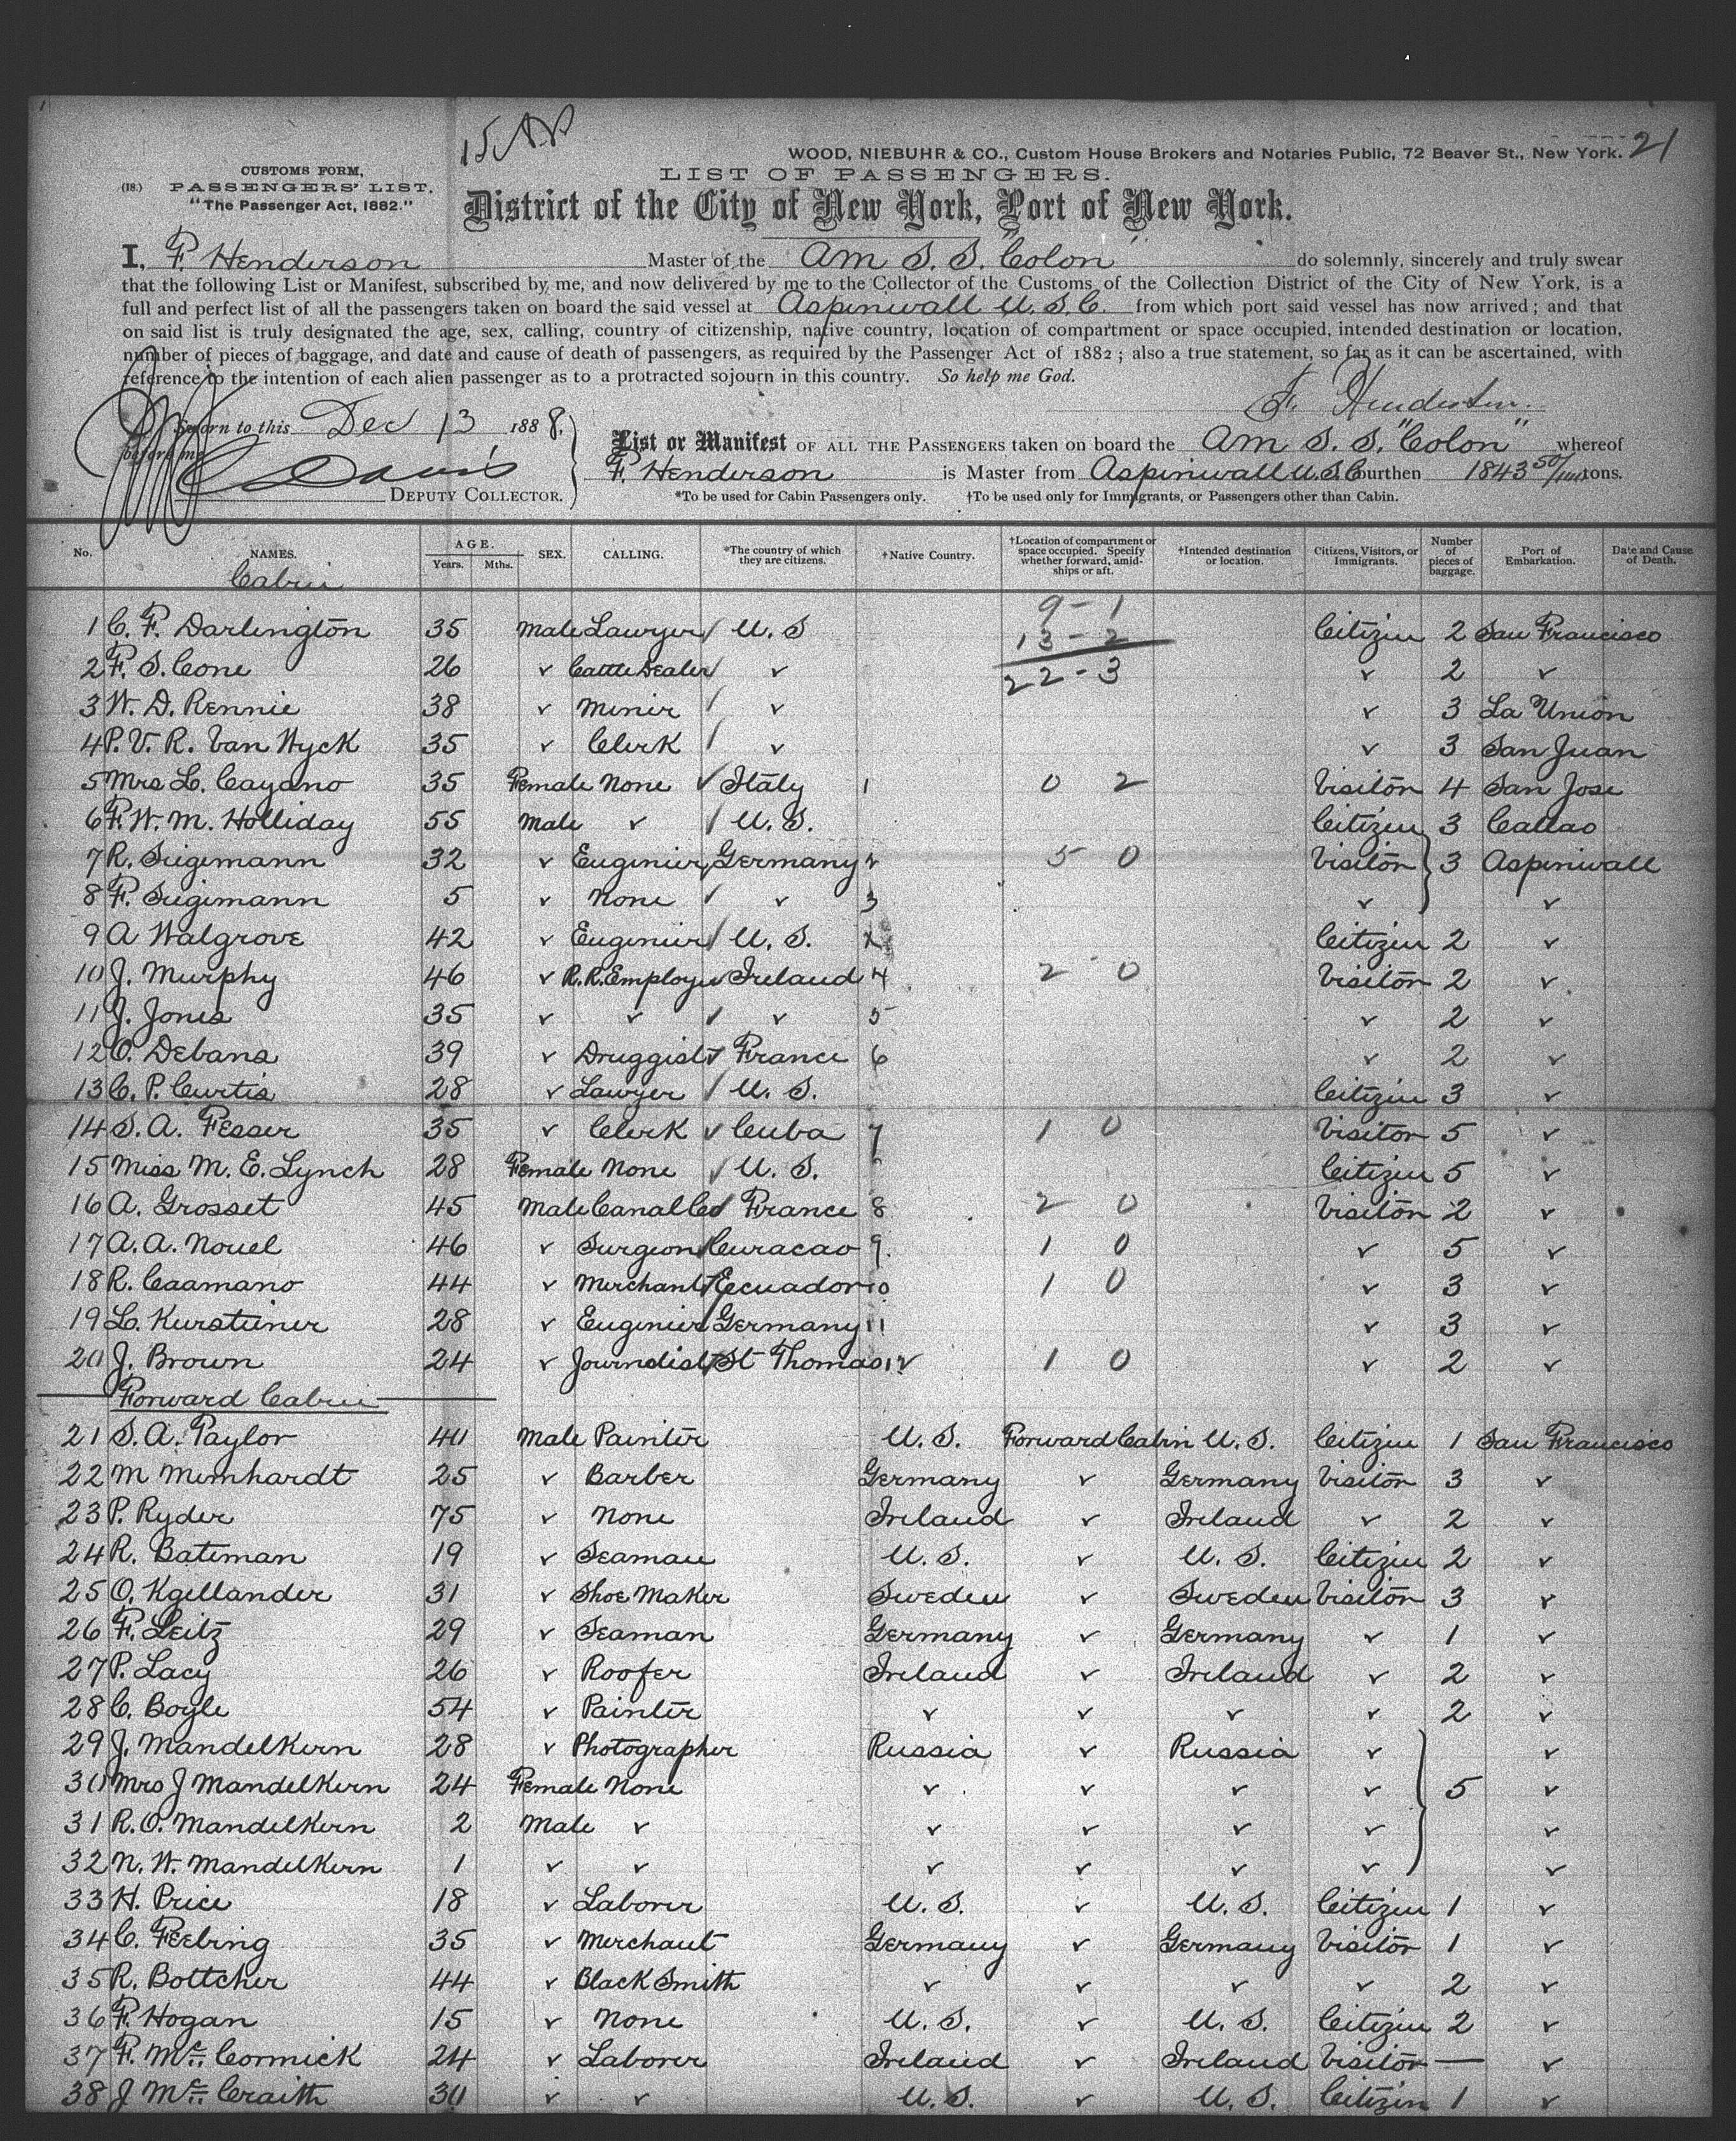 15
21
WOOD, NIEBUHR & CO., Custom House Brokers and Notaries Public, 72 Beaver St., New York.
CUSTOMS FORM,
(18.) PASSENGERS' LIST.
"The Passenger Act, 1882."
LIST OF PASSENGERS.
District of the City of New York, Port of New York.
I, F. Henderson Master of the Am S. S. "Colon" do solemnly, sincerely and truly swear
that the following List or Manifest, subscribed by me, and now delivered by me to the Collector of the Customs of the Collection District of the City of New York, is a
full and perfect list of all the passengers taken on board the said vessel at Aspinwall U. S. C. from which port said vessel has now arrived; and that
on said list is truly designated the age, sex, calling, country of citizenship, native country, location of compartment or space occupied, intended destination or location,
number of pieces of baggage, and date and cause of death of passengers, as required by the Passenger Act of 1882; also a true statement, so far as it can be ascertained, with
reference to the intention of each alien passenger as to a protracted sojourn in this country. So help me God.
F. Henderson.
Sworn to this Dec 13 1888.
before me
C Davis
DEPUTY COLLECTOR.
List or Manifest OF ALL THE PASSENGERS taken on board the Am S. S. "Colon" whereof
F. Henderson is Master from Aspinwall U.S.C burthen 1843 50/100 tons.
*To be used for Cabin Passengers only. †To be used only for Immigrants, or Passengers other than Cabin.
No. NAMES. AGE. Years. Mths. SEX. CALLING. *The country of which they are citizens. †Native Country. †Location of compartment or space occupied. Specify whether forward, amidships or aft. †Intended destination or location. Citizens, Visitors, or Immigrants. Number of pieces of baggage. Port of Embarkation. Date and Cause of Death.
Cabin
9 - 1
1 C. F. Darlington 35 Male Lawyer / U. S 13 - 2 Citizen 2 San Francisco
2 F. S. Cone 26 ✓ Cattle Dealer / ✓ 22 - 3 ✓ 2 ✓
3 W. D. Rennie 38 ✓ Miner / ✓ ✓ 3 La Union
4 P. V. R. Van Wyck 35 ✓ Clerk / ✓ ✓ 3 San Juan
5 Mrs L. Cayano 35 Female None ✓ Italy 1 0 2 Visitor 4 San Jose
6 F. W. M. Holliday 55 Male ✓ / U. S. Citizen 3 Callao
7 R. Siegemann 32 ✓ Enginier Germany 2 5 0 Visitor 3 Aspinwall
8 F. Siegemann 5 ✓ None / ✓ 3 ✓ ✓
9 A Walgrove 42 ✓ Enginier / U. S. x Citizen 2 ✓
10 J. Murphy 46 ✓ R.R. Employee Ireland 4 2 0 Visitor 2 ✓
11 J. Jones 35 ✓ ✓ / ✓ 5 ✓ 2 ✓
12 O. Debans 39 ✓ Druggist ✓ France 6 ✓ 2 ✓
13 C. P. Curtis 28 ✓ Lawyer / U. S. Citizen 3 ✓
14 S. A. Fesser 35 ✓ Clerk ✓ Cuba 7 1 0 Visitor 5 ✓
15 Miss M. E. Lynch 28 Female None / U. S. Citizen 5 ✓
16 A. Grosset 45 Male Canal Co / France 8 2 0 Visitor 2 ✓
17 A. A. Nouel 46 ✓ Surgeon / Curacao 9 1 0 ✓ 5 ✓
18 R. Caamano 44 ✓ Merchant / Ecuador 10 1 0 ✓ 3 ✓
19 L. Kursteiner 28 ✓ Enginier / Germany 11 ✓ 3 ✓
20 J. Brown 24 ✓ Journalist / St Thomas 12 1 0 ✓ 2 ✓
Forward Cabin
21 S. A. Taylor 40 Male Painter U. S. Forward Cabin U. S. Citizen 1 San Francisco
22 M Meinhardt 25 ✓ Barber Germany ✓ Germany Visitor 3 ✓
23 P. Ryder 75 ✓ None Ireland ✓ Ireland ✓ 2 ✓
24 R. Bateman 19 ✓ Seaman U. S. ✓ U. S. Citizen 2 ✓
25 O. Kgellander 31 ✓ Shoe Maker Sweden ✓ Sweden Visitor 3 ✓
26 F. Leitz 29 ✓ Seaman Germany ✓ Germany ✓ 1 ✓
27 P. Lacy 26 ✓ Roofer Ireland ✓ Ireland ✓ 2 ✓
28 C. Boyle 54 ✓ Painter ✓ ✓ ✓ ✓ 2 ✓
29 J. Mandelkern 28 ✓ Photographer Russia ✓ Russia ✓ ✓
30 Mrs J Mandelkern 24 Female None ✓ ✓ ✓ ✓ 5 ✓
31 R. O. Mandelkern 2 Male ✓ ✓ ✓ ✓ ✓ ✓
32 N. W. Mandelkern 1 ✓ ✓ ✓ ✓ ✓ ✓ ✓
33 H. Price 18 ✓ Laborer U. S. ✓ U. S. Citizen 1 ✓
34 C. Feebing 35 ✓ Merchant Germany ✓ Germany Visitor 1 ✓
35 R. Bottcher 44 ✓ Black Smith ✓ ✓ ✓ ✓ 2 ✓
36 F. Hogan 15 ✓ None U. S. ✓ U. S. Citizen 2 ✓
37 F. Mc Cormick 24 ✓ Laborer Ireland ✓ Ireland Visitor — ✓
38 J Mc Craith 30 ✓ ✓ U. S. ✓ U. S. Citizen 1 ✓